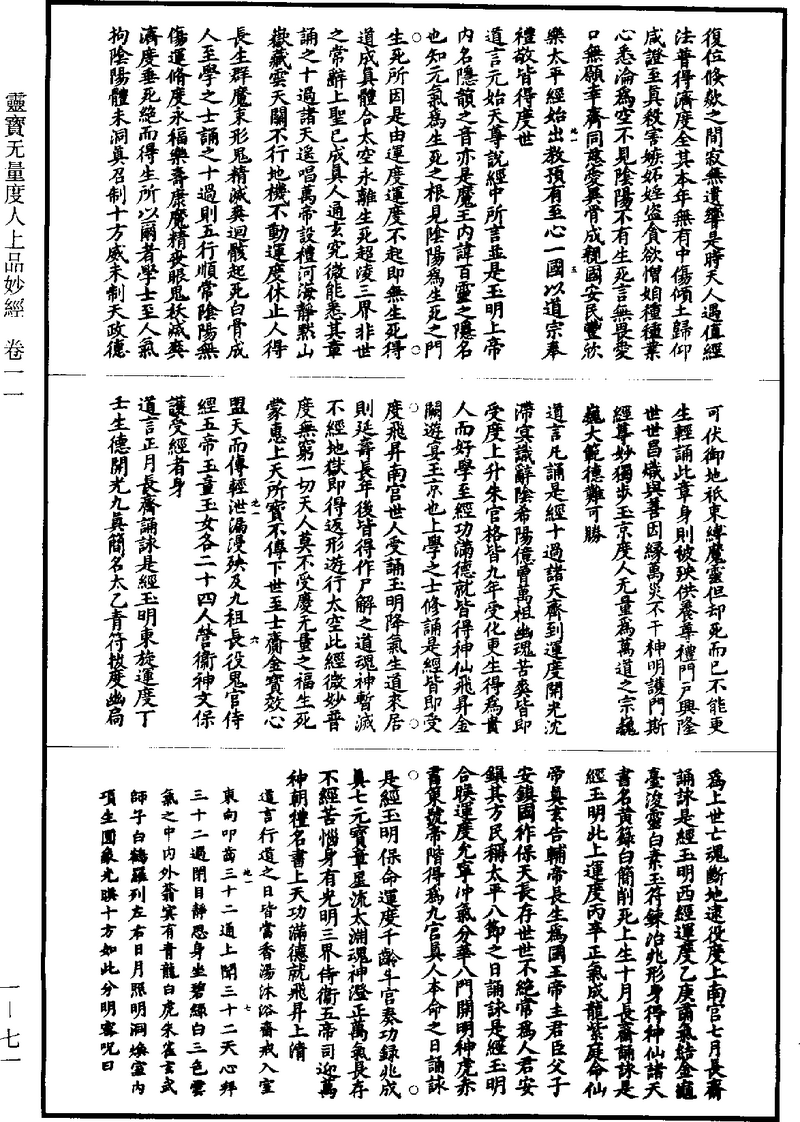 復位倏欻之間寂無遺響是時天人遇值經
法普得濟度全其本年無有中傷傾土歸仰
咸證至真殺害嫉妬婬盜貪欲憎姮種種業
心悉淪爲空不見陰陽不有生死言無畏愛
口無願幸齊同慈愛異骨成親國安民豐欣
樂太平經始出教預有至心一國以道宗奉
禮敬皆得度世
道言元始天尊說經中所言並是玉明上帝
內名隱韻之音亦是魔王內諱百靈之隱名
也知元氣爲生死之根見陰陽爲生死之門
生死所因是由運度運度不起即無生死得
道成真體合太空永離生死超凌三界非世
之常辭上聖已成真人通玄究微能悉其章
誦之十過諸天遥唱萬帝設禮河海靜默山
嶽藏雲天關不行地機不動運度休止人得
長生群魔束形鬼精滅爽迴骸起死白骨成
人至學之士誦之十過則五行順常陰陽無
傷運脩度永福樂壽康魔精喪眼鬼妖滅爽
濟度垂死絶而得生所以爾者學士至人氣
拘陰陽體未洞真召制十方威未制天政德
可伏御地祇束縛魔靈但却死而已不能更
生輕誦此章身則被殃供養尊禮門戶興隆
世世昌熾與善因緣萬災不干神明護門斯
經尊妙獨步玉京度人无量爲萬道之宗巍
巍大範德難可勝
道言凡誦是經十過諸天齊到運度開光沈
滯冥識辭陰希陽億曾萬祖幽魂苦爽皆即
受度上升朱宮格皆九年受化更生得爲貴
人而好學至經功滿德就皆得神仙飛昇金
闕遊宴玉京也上學之士修誦是經皆即受
度飛昇南宮世人受誦玉明降氣生道來居
則延壽長年後皆得作尸解之道魂神暫滅
不經地獄即得返形遊行太空此經微妙普
度無窮一切天人莫不受慶无量之福生死
蒙惠上天所寶不傳下世至士齎金寶效心
盟天而傳輕泄漏浸殃及九祖長役鬼官侍
經五帝玉童玉女各二十四人營衞神文保
護受經者身
道言正月長齋誦詠是經玉明東旋運度丁
壬生德開光九眞簡名太乙青符拔度幽局
爲上世亡魂斷地逮役度上南宮七月長齋
誦詠是經玉明西經運度乙庚肅氣結金龜
臺浚靈白素玉符鍊冶兆形身得神仙諸天
書名黃籙白簡削死上生十月長齋誦詠是
經玉明北上運度丙辛正氣成龍紫庭命仙
帝真玄告輔帝長生爲國王帝主君臣父子
安鎮國祚保天長存世世不絶常爲人君安
鎮其方民稱太平八節之日誦詠是經玉明
合睽運度允寧沖氣分華八門開明神虎赤
書策號帝階得爲九宮真人本命之日誦詠
是經玉明保命運度千齡斗官奏功錄兆成
眞七元寶章星流太淵魂神澄正萬氣長存
不經苦惱身有光明三界侍衞五帝司迎萬
神朝禮名書上天功滿德就飛昇上清
道言行道之日皆當香湯沐浴齋戒入室
東向叩齒三十二通上聞三十二天心拜
三十二過閉目靜思身坐碧綠白三色雲
氣之中內外蓊冥有青龍白虎朱雀玄武
師子白鶴羅列左右日月照明洞煥室內
項生圓象光暎十方如此分明密呪曰
靈寶无量度人上品妙經 卷一一
一—七一